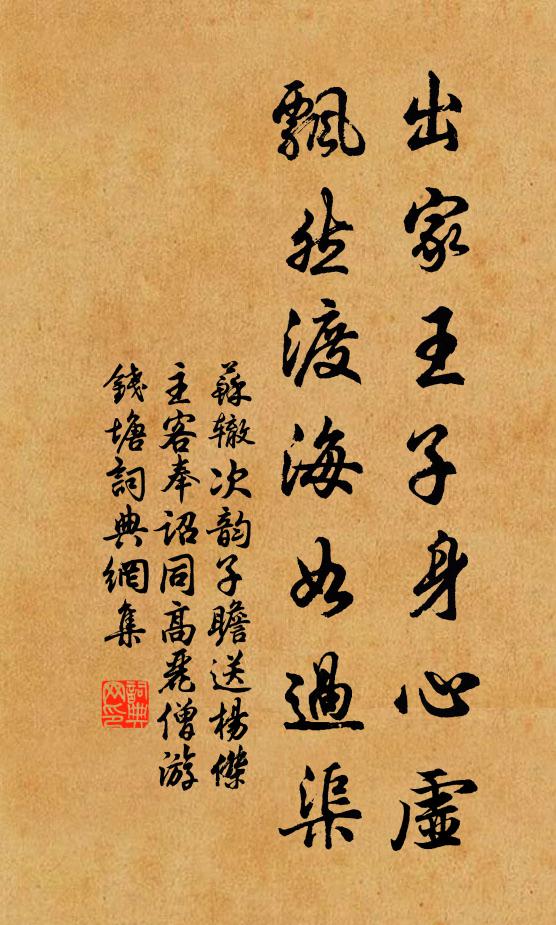 出家王子身心虛
飄然渡海如過渠
蘇轍次韵子瞻送楊傑
主客奉詔同高麗僧游
錢塘詞典網集
詞典
网印